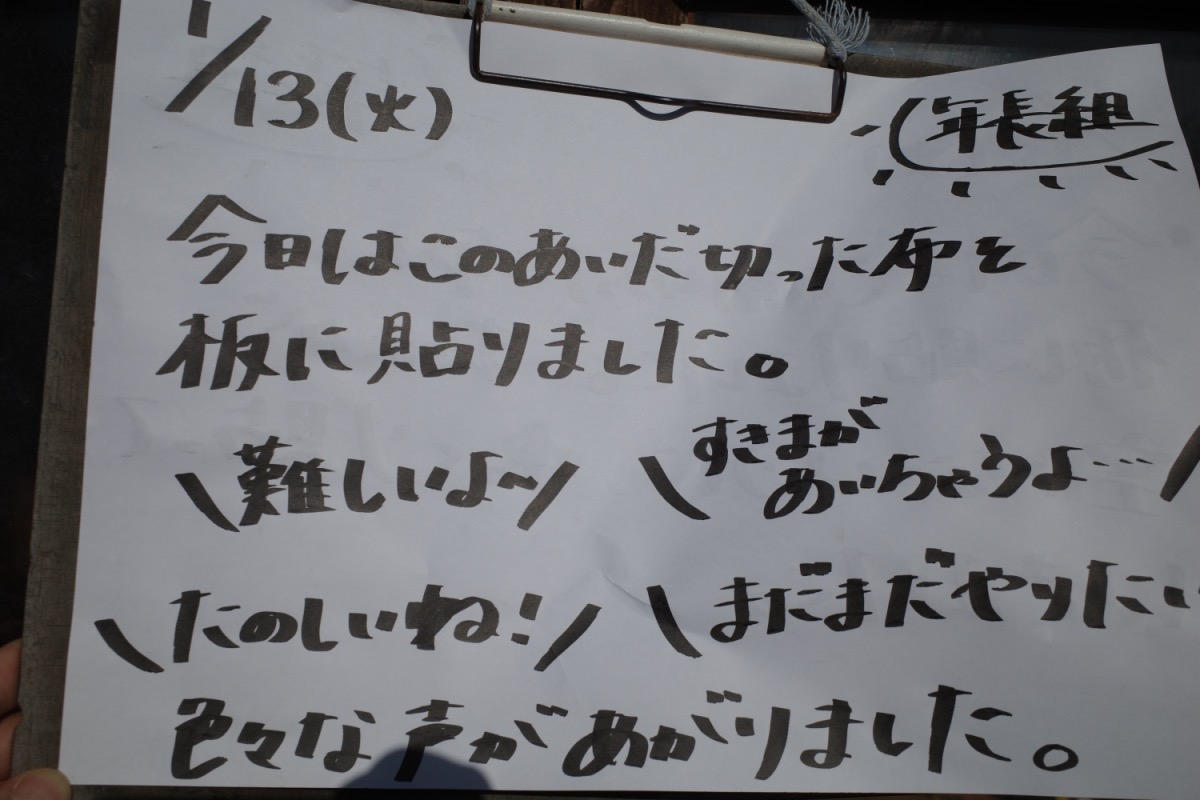 1/13(火)
年長組
今日はこのあいだ切った布を
板に貼りました。
\難しいよ〜/
\すきまが
あいちゃうよ…/
\たのしいね!/
\まだまだやりたい
色々な声があがりました。